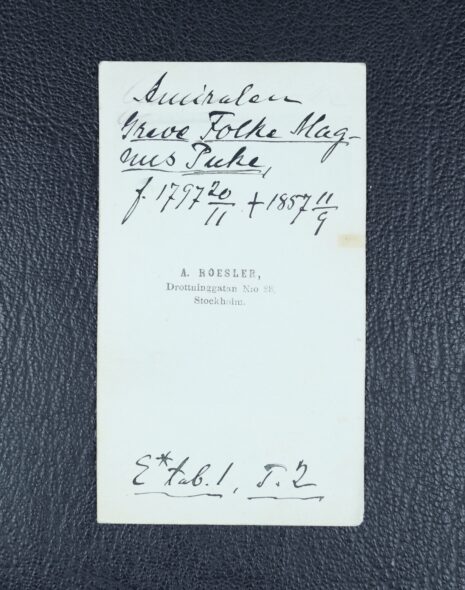 Amiralen
Greve Folke Mag-
nus Puke,
f. 1797 20/11 † 1857 11/9
A. ROESLER,
Drottninggatan N:o
Stockholm.
E* tab. 1, T. 2